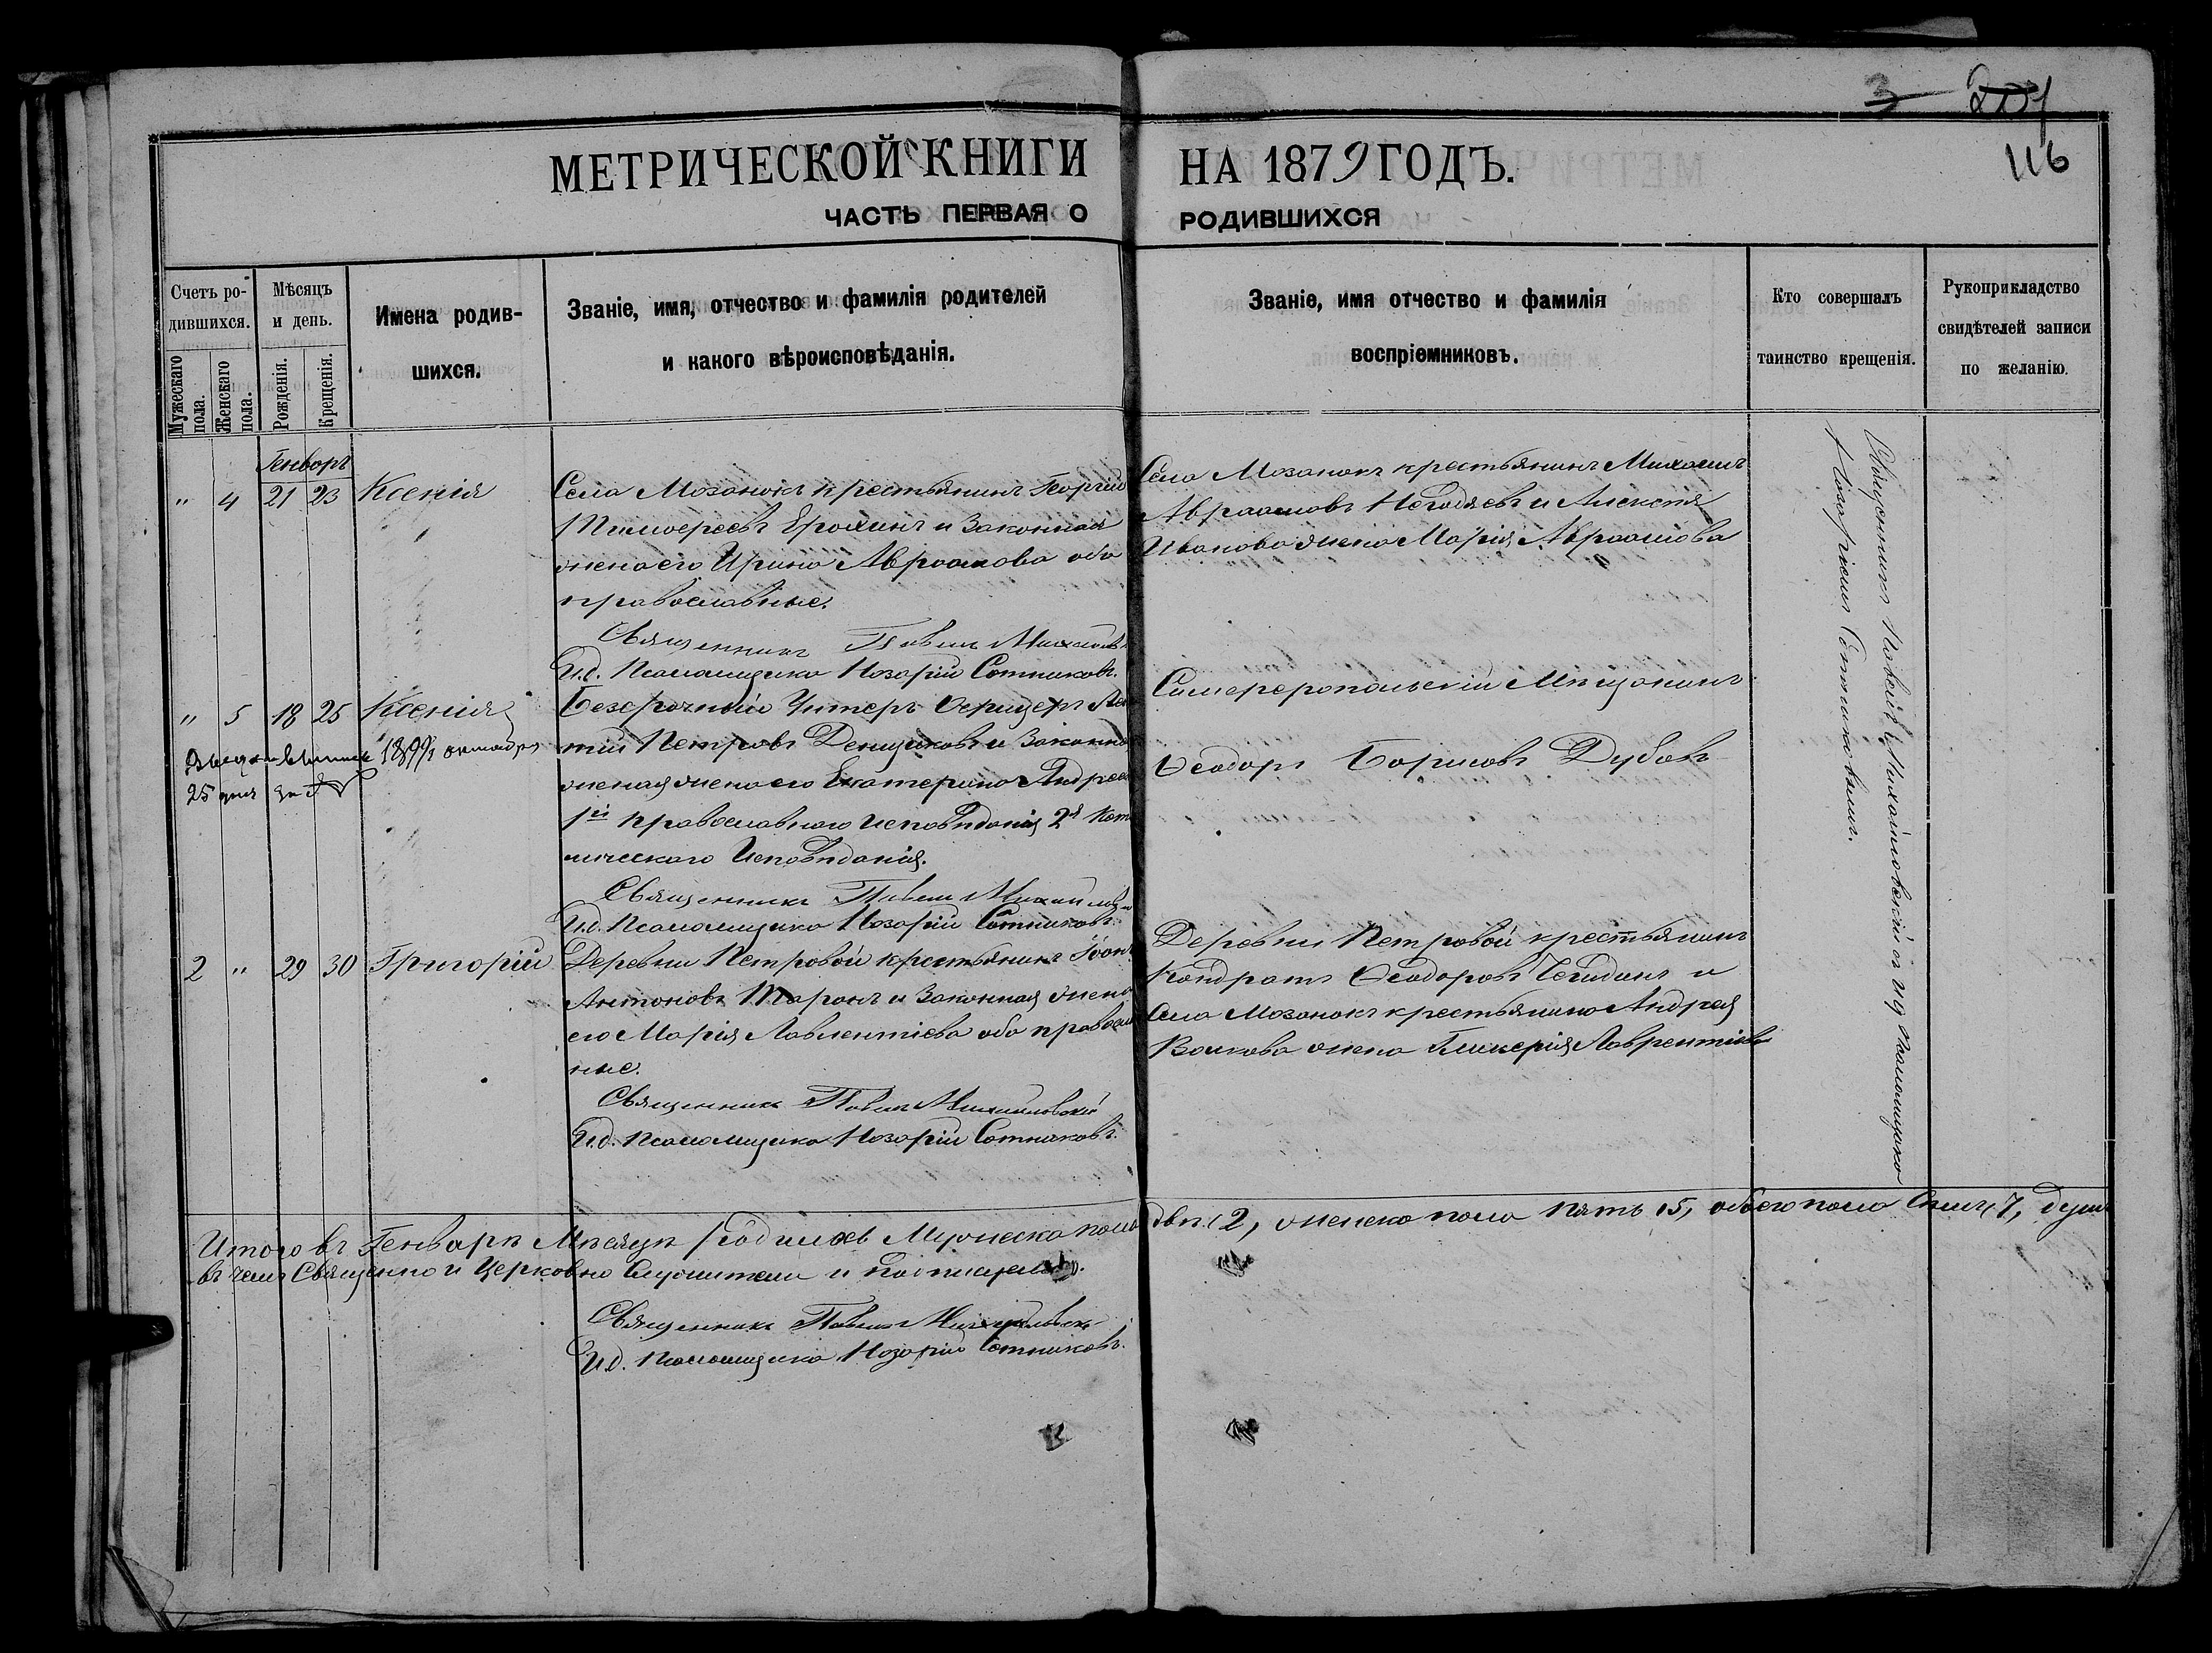 3 207
116
МЕТРИЧЕСКОЙ КНИГИ НА 1879 ГОДЪ.
ЧАСТЬ ПЕРВАЯ О РОДИВШИХСЯ
Счетъ ро-
дившихся.
Мужескаго пола.
Женскаго пола.
Мѣсяцъ
и день.
Рожденія.
Крещенія.
Имена родив-
шихся.
Званіе, имя, отчество и фамилія родителей
и какого вѣроисповѣданія.
Званіе, имя отчество и фамилія
воспріемниковъ.
Кто совершалъ
таинство крещенія.
Рукоприкладство
свидѣтелей записи
по желанію.
Генворъ
" 4 21 23 Ксенія
Села Мозанокъ крестьянинъ Георгій
Тимоѳеевъ Ерохинъ и Законная
жена его Ирина Авраамова оба
православные.
Священникъ Павелъ
И.д. Псаломщика Назарій Сотниковъ.
Села Мозанокъ крестьянинъ Михаилъ
Авраамовъ и Алексѣя
Иванова жена Марія Авраамова
Священникъ Павелъ Михайловскій съ ид псаломщика
Назаріемъ Сотниковымъ.
" 5 18 25 Ксенія
1899 г октября
25 дня за №
Безсрочный Унтеръ Офицеръ
Петровъ Денщиковъ и Законно
жена его Екатерина Андреев
1й православнаго исповѣданія 2я Като
лическаго Исповѣданія.
Священникъ Павелъ
И.д. Псаломщика Назарій Сотниковъ.
Симферопольскій Мѣщанинъ
Ѳеодоръ Борисовъ Дубовъ
2 " 29 30 Григорій
Деревни Петровой крестьянинъ Іоанъ
Антоновъ Таранъ и Законная жена
его Марія Лавлентіева оба правосла
ные.
Священникъ Павелъ Михайловскій
И.д. Псаломщика Назарій Сотниковъ.
Деревни Петровой крестьянинъ
Кондратъ Ѳеодоровъ и
Села Мозанокъ крестьянина Андрея
Волкова жена Гликерія Лаврентіева
Итого въ Генварѣ Мѣсяцѣ родилось Мужеска пола двѣ 2, женска пола пять 5, обоего пола Семь 7, душъ
въ чемъ Священно и Церковно Служители и подписуемся.
Священникъ Павелъ
И.д. Псаломщика Назарій Сотниковъ.